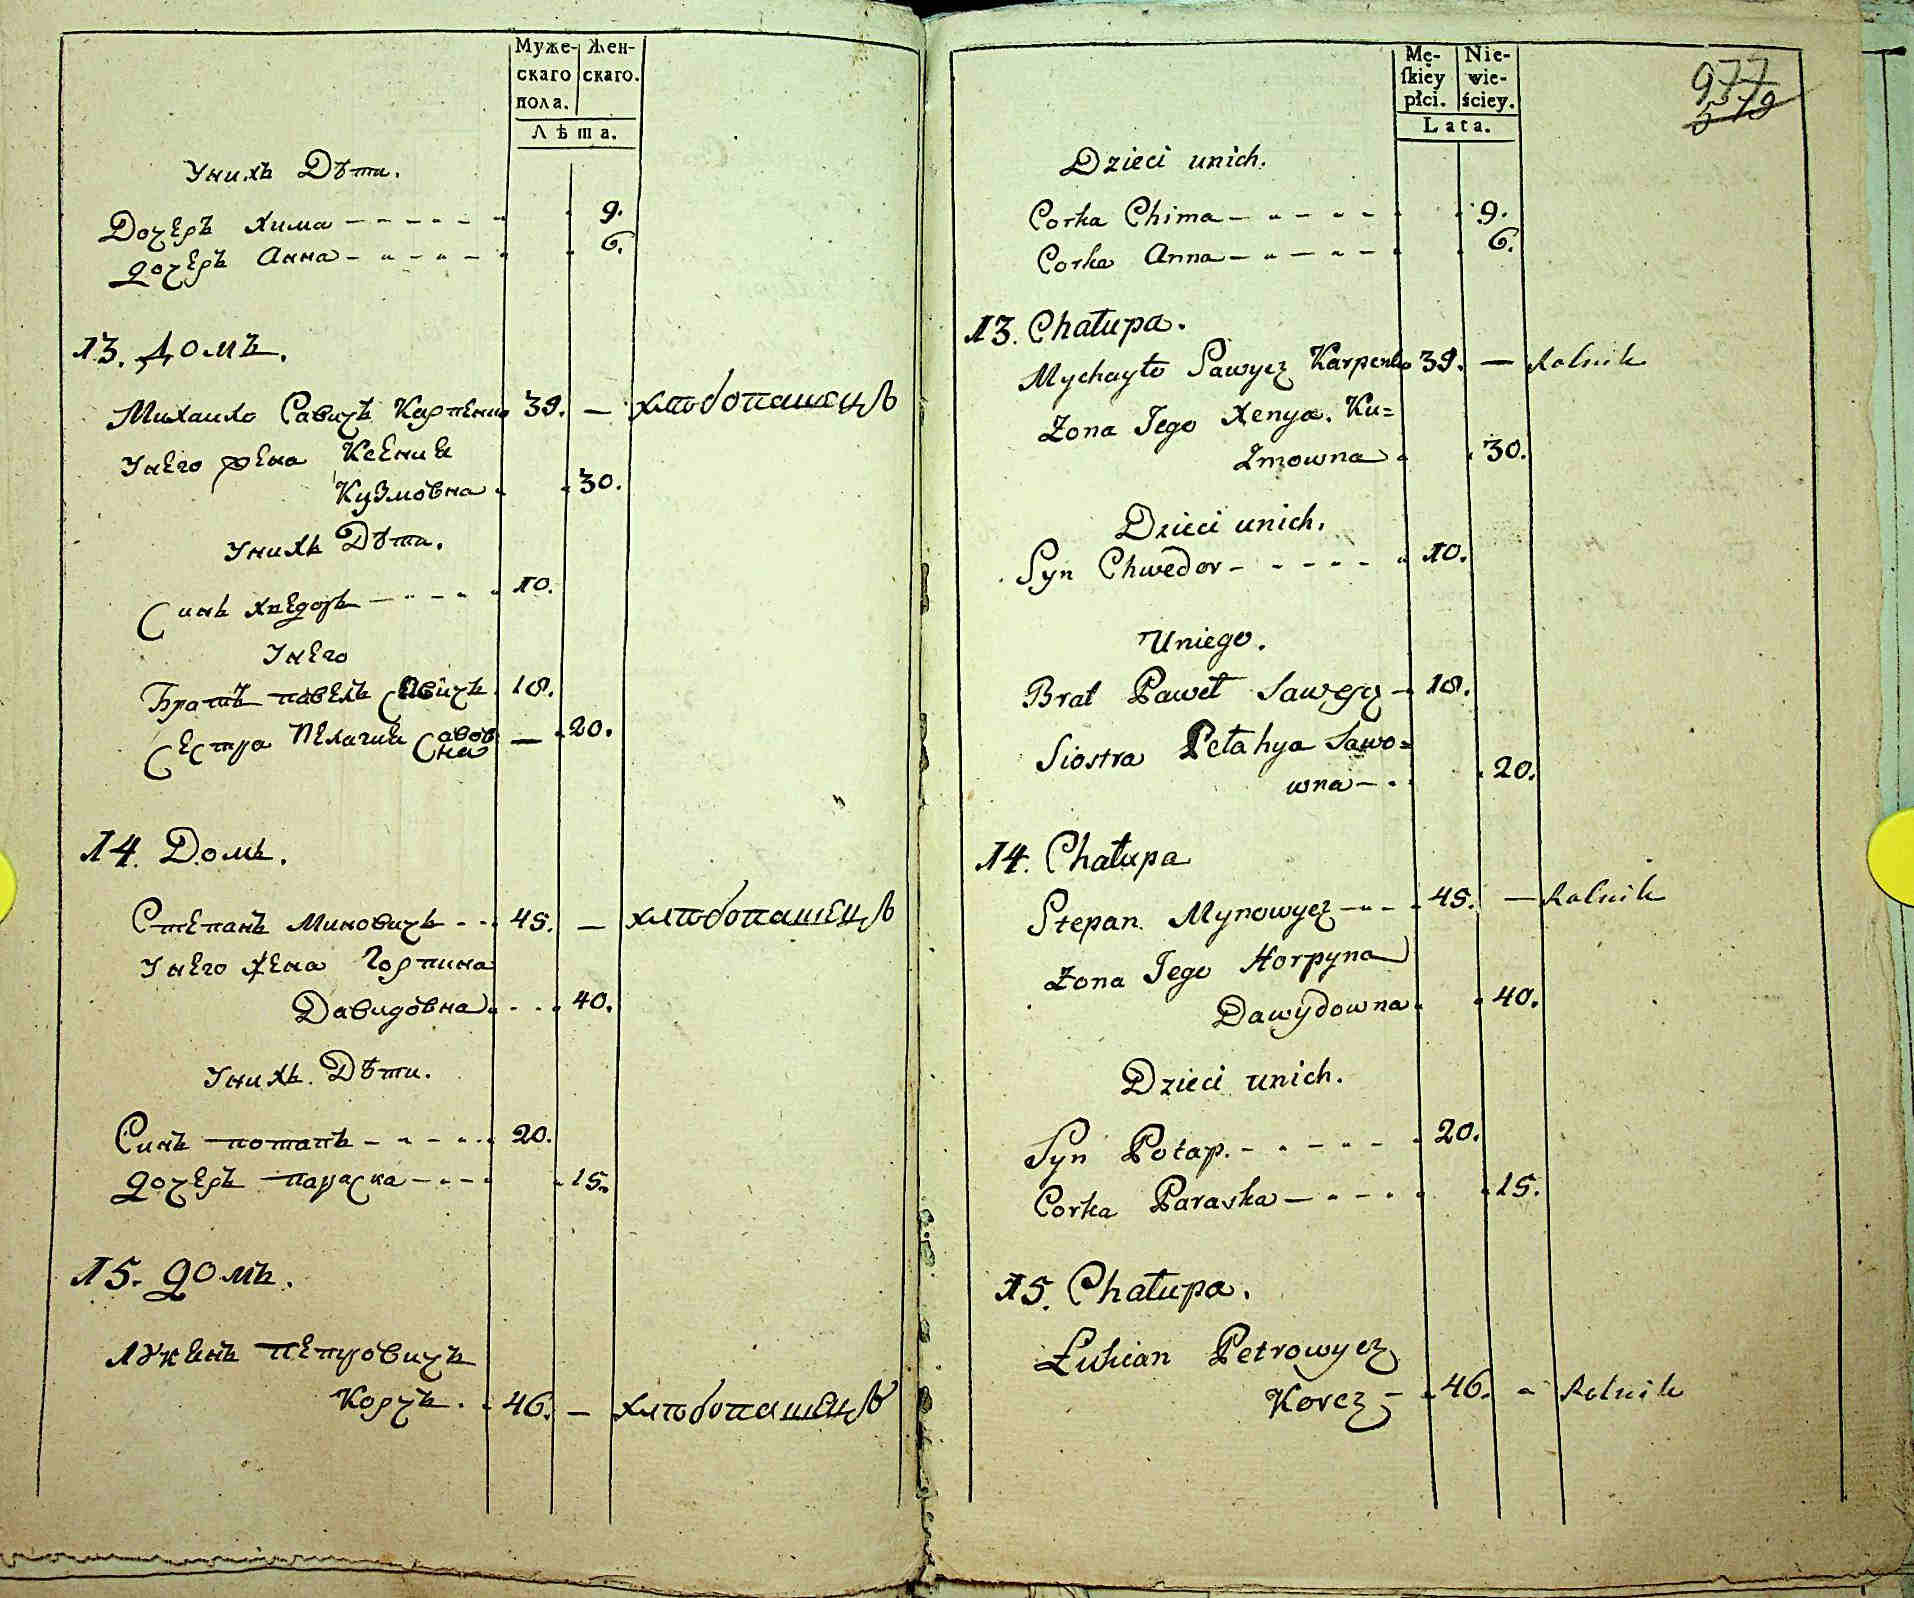 Муже- Жен-
скаго скаго.
пола.
Лѣта.
Унихъ Дѣти.
Дочеръ Хима 9.
Дочеръ Анна 6.
13. Домъ.
Михаило Савичъ Карпенко 39. — хлѣбопашецъ
Унего жена Ксения
Кузмовна 30.
Унихъ Дѣти.
Синъ Хведоръ 10.
Унего
Братъ павелъ Савичъ 18.
Сестра Пелагия Савов
на — 20.
14. Домъ.
Степанъ Миновичъ 45. — хлѣбопашецъ
Унего Жена Горпина
Давидовна 40.
Унихъ Дѣти.
Синъ потапъ 20.
Дочеръ параска 15.
15. Домъ.
лукянъ петровичъ
Корчъ. 46. — хлѣбопашецъ
Mę- Nie-
ſkiey wie-
płci. ściey.
Lata.
977
Dzieci unich.
Corka Chima 9.
Corka Anna 6.
13. Chałupa.
Mychayło Sawycz Karpenko 39. — Rolnik
Żona Jego Xenya. Ku=
zmowna 30.
Dzieci unich.
Syn Chwedor 10.
Uniego.
Brat Paweł Sawycz 18.
Siostra Pełahya Sawo=
wna 20.
14. Chałupa
Stepan Mynowycz 45. — Rolnik
Żona Jego Horpyna
Dawydowna 40.
Dzieci unich.
Syn Potap. 20.
Corka Paraska 15.
15. Chałupa.
Łukian Petrowycz
Korcz 46. Rolnik